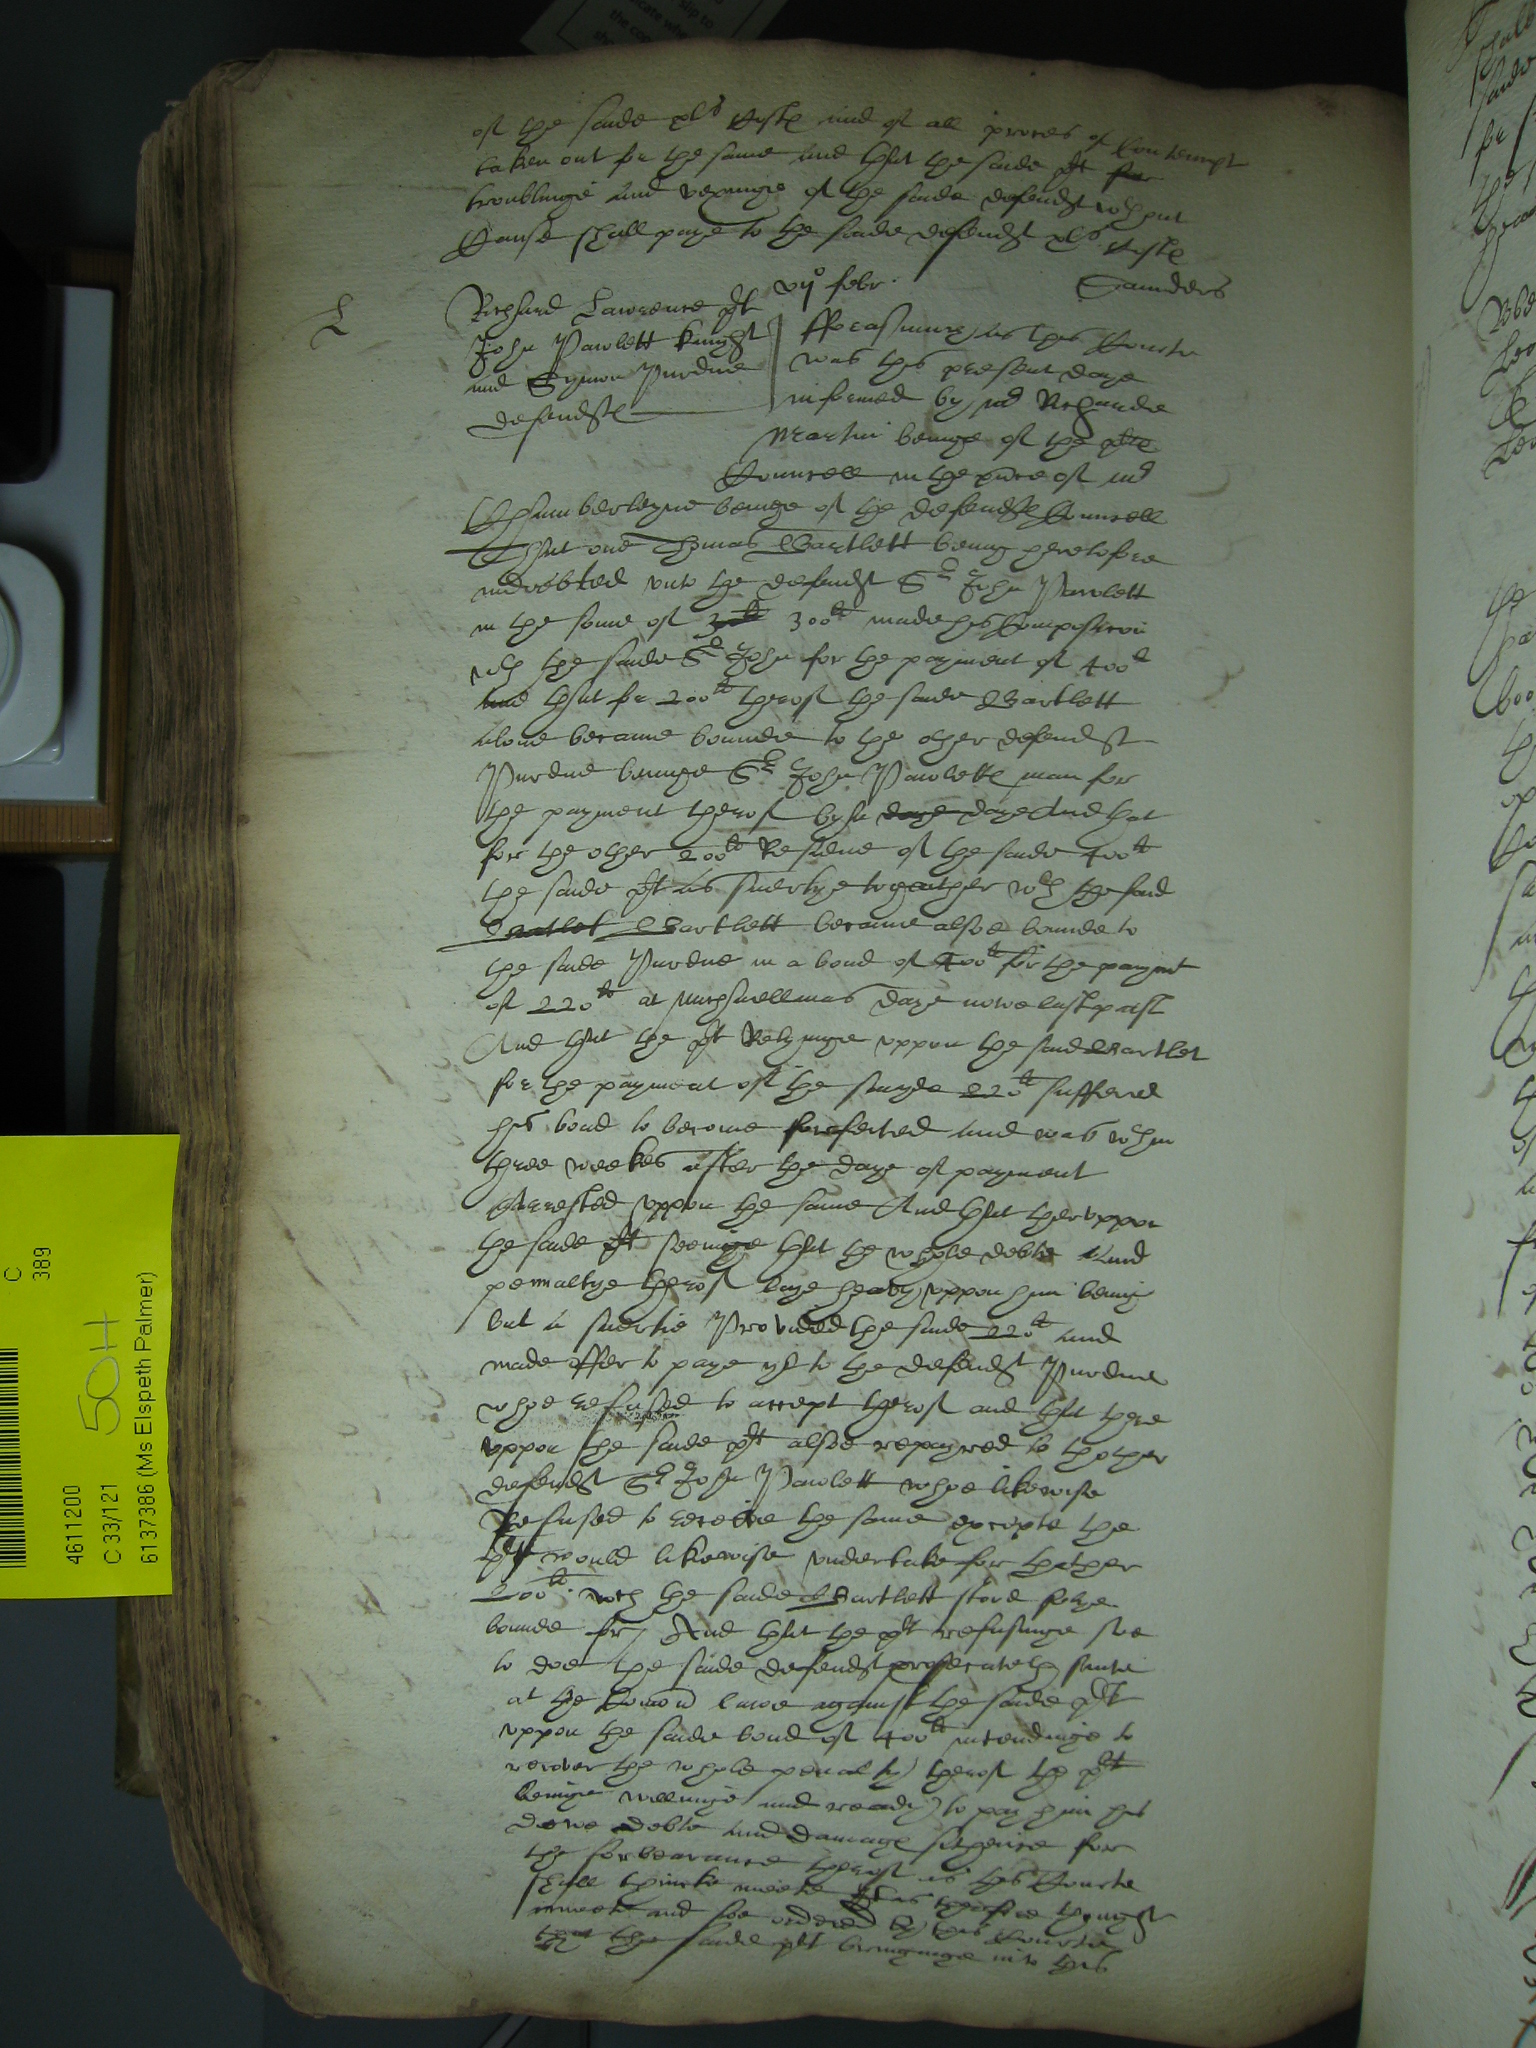 of the saide xls Costs and of all proces of Contempt
taken out for the same and that the saide plt for
troublinge and vexinge of the saide defendt wthout
Cause shall paye to the saide defendt xls Costs
Saunders
vijo febr.
L
Richard Lawrence plt
John Pawlett knight
and Symon Purdue
defendtes
fforasmuch as this Courte
was this present daye
informed by mr Richarde
Martin beinge of the pltes
Councell in the pnce of mr
Chamberleyne beinge of the defendtes Councell
That one Thomas Bartlett being heretofore
indebted vnto the defendt Sr John Pawlett
in the some of 300li 300li made his Composicon
wth the saide Sr John for the payment of 400li
and that for 200li therof the saide Bartlett
alone became bounde to the other defendt
Purdue beinge Sr John Pawletts man for
the payment therof by a daye daye And that
for the other 200li Residue of the saide 400li
the saide plt as suertye togeather wth the said
Bartlet Bartlett became alsoe bounde to
the saide Purdue in a bond of 400li for the paymt
of 220li at Michaellmas daye nowe last past
And that the plt Relyinge vppon the said Bartlet
for the payment of the sayde 220li suffered
his bond to become forefeited and was wthin
three weekes after the daye of payment
Arrested vppon the same And that thervppon
the saide plt seeinge that the whole debte and
pennaltye therof laye heavy vppon him being
but a suertie Provided the saide 220li and
made offer to paye yt to the defendt Purdue
whoe refused to accept therof and that there
vppon the saide plt alsoe repayred to thother
defendt Sr John Pawlett whoe likewise
Refused to receive the same excepte the
plt would likewise vndertake for thother
200li wch the saide Bartlett stood solye
bounde for, And that the plt refusinge soe
to doe the saide defendt prosecuteth suite
at the Comon lawe against the saide plt
vppon the saide bond of 400li intendinge to
recover the whole penalty therof the plt
beinge willinge and ready to pay him his
dewe debte and damages for
the forbearance therof as this Courte
shall thincke meete It is therfore thought
meete and soe ordered by this Courte
that the saide plt bringinge into this
4611200
C 33/121
6137386 (Ms Elspeth Palmer)
50H
C
389
slip to
the cop